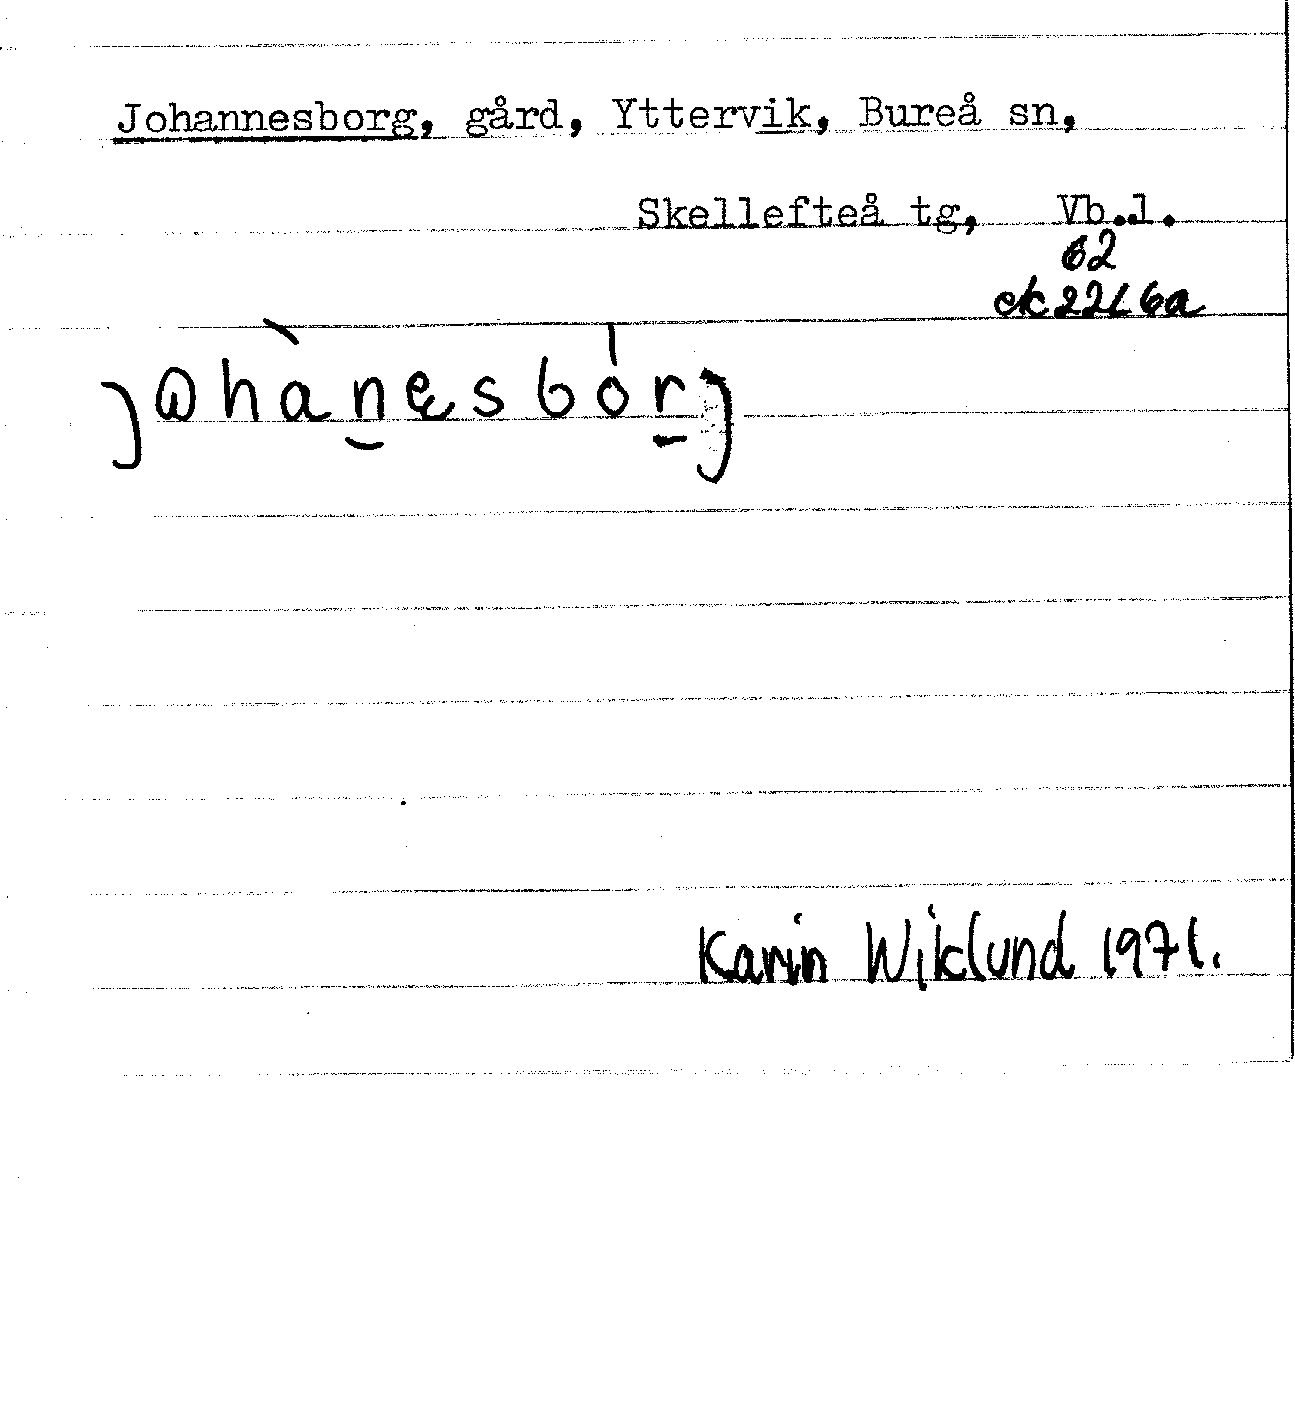 Johannesborg, gård, Yttervik, Bureå sn,
Skellefteå tg, Vb.l.
62
ek 2216a
jωhànesbórj
Karin Wiklund 1971.